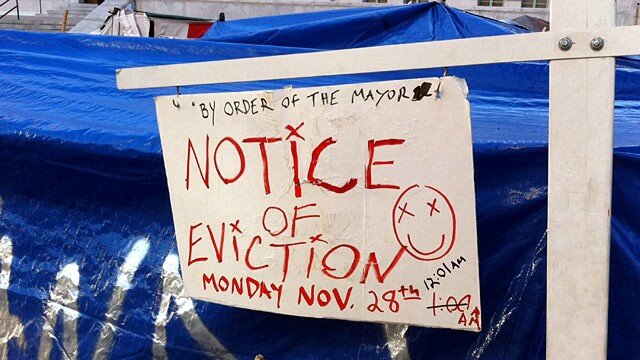 "BY ORDER OF THE MAYOR"
NOTICE
OF
EViCTiON
MONDAY NOV. 28th 12:01 AM
1:00 AM